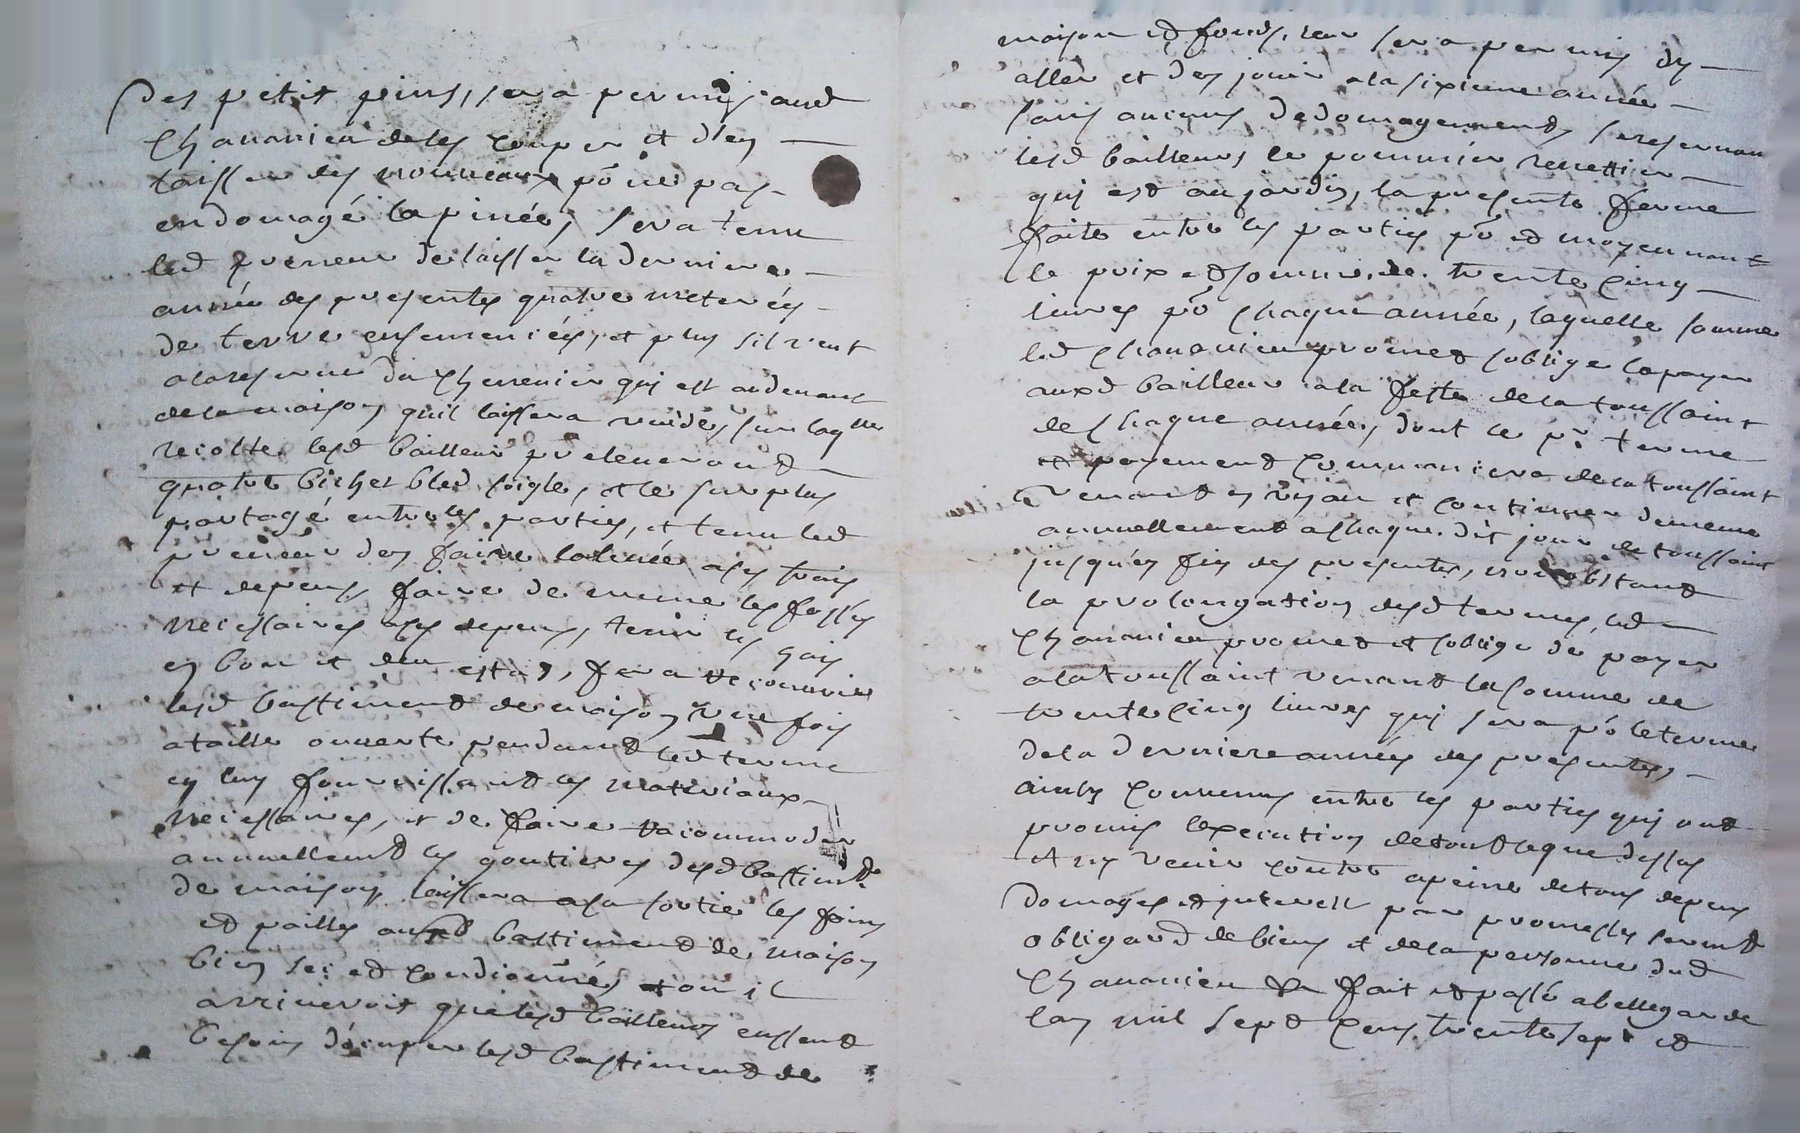 des petit pins, sera permis aud
Chavanieu de les couper et d'en
laisser des nouveaux po ne pas
endomagé la pinée, sera tenu
led preneur de laisser la derniere
année des presentes quatre meterées
de terre ensemencées, et plus sil veut
a la reserve du chenevier qui est audevant
de la maison quil laissera vuide, sur laqlle
recolte lesd bailleurs preleveront
quatre bichet bled soigle, et le surplus
partagé entre les parties, et tenu led
preneur den faire la levée a ses frais
et depens, faire de meme les fossés
necessaires a ses depens, tenir les
en bon et deu estat, fera recouvrir
lesd bastiment de maison une fois
a taille ouverte pendant led terme
en luy fournissant les materiaux
necessaires, et de faire racommoder
annuellemt les goutieres desd bastimts
de maison laissera a sa sortie les foins
et pailles auxd bastiment de maison
bien sec et condionnés et ou il
arriveroit que lesd bailleurs eussent
besoin d'ocuper lesd bastiment de
maison et fonds, leur sera permis dy
aller et den jouir a la sixieme année
sans aucuns dedomagements se reservant
lesd bailleurs le pommier
qui est au jardin, la presente ferme
faite entre les parties po et moyennant
le prix et somme de trente cinq
livres po chaque année, laquelle somme
led Chavanieu promet soblige la payer
auxd bailleur a la feste de la toussaint
de chaque année, dont le pr terme
et payement commencera de la toussaint
venant en un an et continuer de meme
annuellement a chaque dit jour de toussaint
jusqu'en fin des presentes, nonobstant
la prolongation desd termes, led
Chavanieu promet et soblige de payer
a la toussaint venant la somme de
trente cinq livres qui sera po le terme
de la derniere année des presentes,
ainsy convenus entre les parties qui ont
promis l'execution de tout ce que dessus
et ny venir contre a peine de tous depens
domages et interest par promesses sermt
obligaon de biens et de la personne dud
Chavanieu fait et passé a bellegarde
lan mil sept cens trente sept et